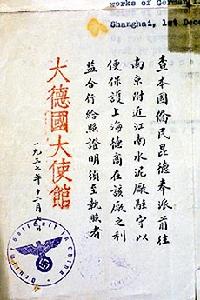 works of German
Shanghai, 1st Dec
查本國僑民昆德奉派前往
南京附近江南水泥廠駐守以
便保護上海德商在該廠之利
益合行給照證明須至執照者
大德國大使館
一九三七年十二月